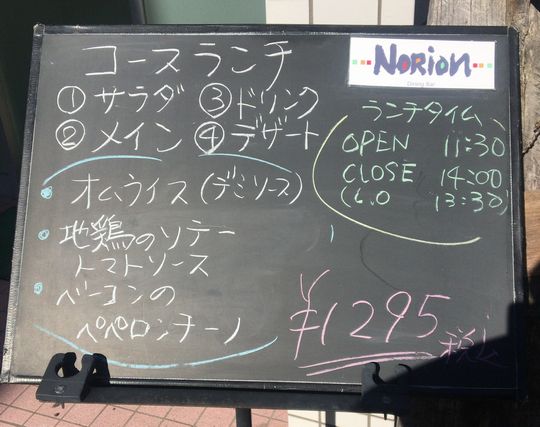 コースランチ
NORION
Dining Bar
①サラダ ③ドリンク
②メイン ④デザート
ランチタイム
OPEN 11:30
CLOSE 14:00
(L.O 13:30)
・オムライス(デミソース)
・地鶏のソテー
トマトソース
・ベーコンの
ペペロンチーノ
¥1295
税込